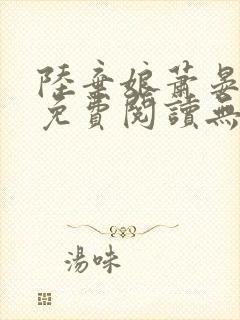 陸棄娘蕭晏
免費閱讀無
湯味